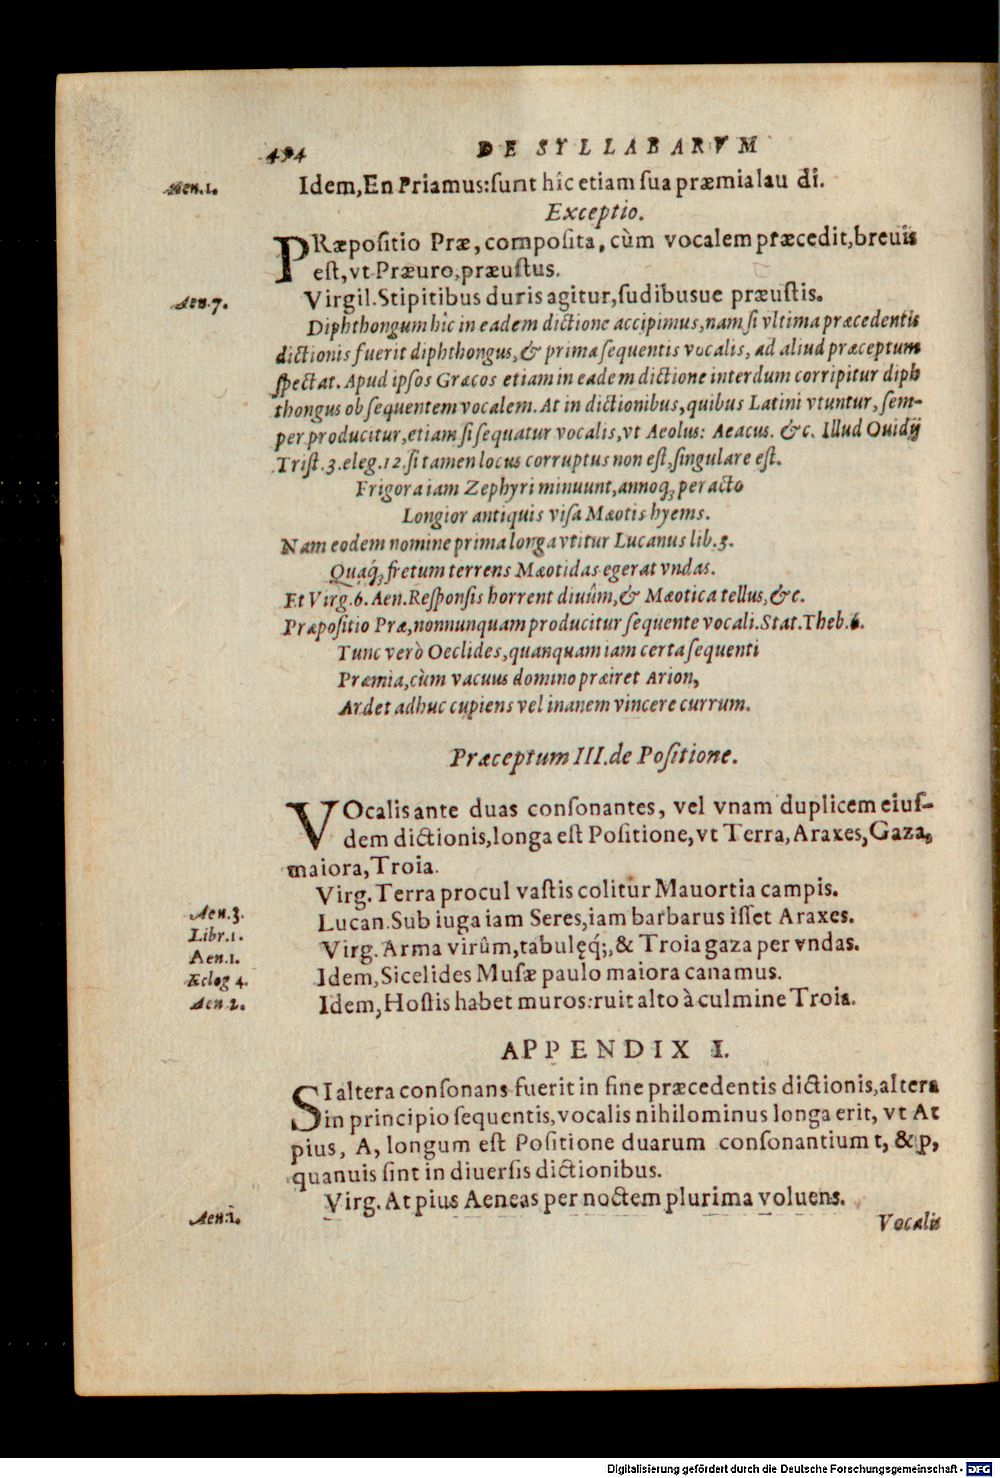 494 DE SYLLABARVM
Aen.1. Idem,En Priamus:sunt hîc etiam sua præmia lau di.
Exceptio.
PRæpositio Præ, composita, cùm vocalem præcedit,breuis
est,vt Præuro,præustus.
Aen.7. Virgil.Stipitibus duris agitur,sudibusue præustis.
Diphthongum hîc in eadem dictione accipimus,nam si vltima præcedentis
dictionis fuerit diphthongus,& prima sequentis vocalis, ad aliud præceptum
spectat. Apud ipsos Græcos etiam in eadem dictione interdum corripitur diph
thongus ob sequentem vocalem. At in dictionibus,quibus Latini vtuntur, sem-
per producitur,etiam si sequatur vocalis,vt Aeolus: Aeacus. &c. Illud Ouidij
Trist.3.eleg.12.si tamen locus corruptus non est,singulare est.
Frigora iam Zephyri minuunt,annoq; peracto
Longior antiquis visa Mæotis hyems.
Nam eodem nomine prima longa vtitur Lucanus lib.3.
Quaq́; fretum terrens Mæotidas egerat vndas.
Et Virg.6.Aen.Responsis horrent diuûm,& Mæotica tellus,&c.
Præpositio Præ,nonnunquam producitur sequente vocali.Stat.Theb.6.
Tunc verò Oeclides,quanquam iam certa sequenti
Præmia,cùm vacuus domino præiret Arion,
Ardet adhuc cupiens vel inanem vincere currum.
Præceptum III.de Positione.
VOcalis ante duas consonantes, vel vnam duplicem eius-
dem dictionis,longa est Positione,vt Terra,Araxes,Gaza,
maiora,Troia.
Virg.Terra procul vastis colitur Mauortia campis.
Aen.3. Lucan.Sub iuga iam Seres,iam barbarus isset Araxes.
Libr.1. Virg.Arma virûm,tabulęq́;,& Troia gaza per vndas.
Aen.1.
Eclog 4. Idem,Sicelides Musæ paulo maiora canamus.
Aen.2. Idem,Hostis habet muros:ruit alto à culmine Troia.
APPENDIX I.
SI altera consonans fuerit in fine præcedentis dictionis,altera
in principio sequentis,vocalis nihilominus longa erit, vt At
pius, A, longum est Positione duarum consonantium t, & p,
quanuis sint in diuersis dictionibus.
Aen.1. Virg.At pius Aeneas per noctem plurima voluens.
Vocalis
Digitalisierung gefördert durch die Deutsche Forschungsgemeinschaft - DFG